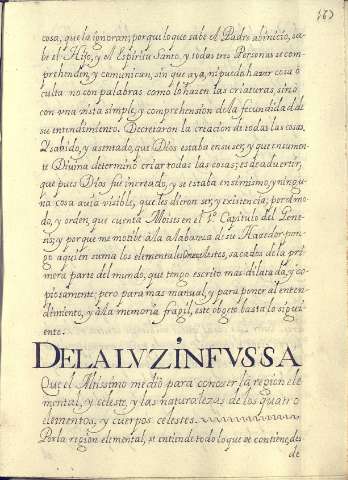 163
cosa, que la ignoran; porque lo que sabe el Padre abinicio, sa-
be el Hijo, y el Espiritu Santo, y todas tres Personas se com-
prehenden, y comunican, sin que aya, ni pueda haver cosa o
culta no con palabras como lo hazen las criaturas, sinó
con una vista simple, y comprehension de la fecundidad de
su entendimiento. Decretaron la creacion de todas las cosas.
Y sabido, y asentado, que Dios estaba en su ser, y que en su men-
te Divina determinó criar todas las cosas; es de advertir,
que pues Dios fue increado, y se estaba en si mismo, y ningu-
na cosa avia visible, que les dieron ser, y existencia; por el mo-
do, y orden, que cuenta Moises en el 1º Capitulo del Gene-
sis; y porque me motibe á la alabanza de su Hacedor pon-
go aqui en suma los elementales sacados de la pri
mera parte del mundo, que tengo escrito mas dilatada, y co-
piosamente; pero para mas manual, y para poner al enten-
dimiento, y á la memoria fragil, este objeto basta lo sigui-
ente.
DE LA LVZ INFVSSA
Que el Altissimo medió para conoser la region ele
mental, y celeste, y las naturalezas de los quatro
elementos, y cuerpos celestes.
Por la region elemental, se entiende todo lo que se contiene des
de